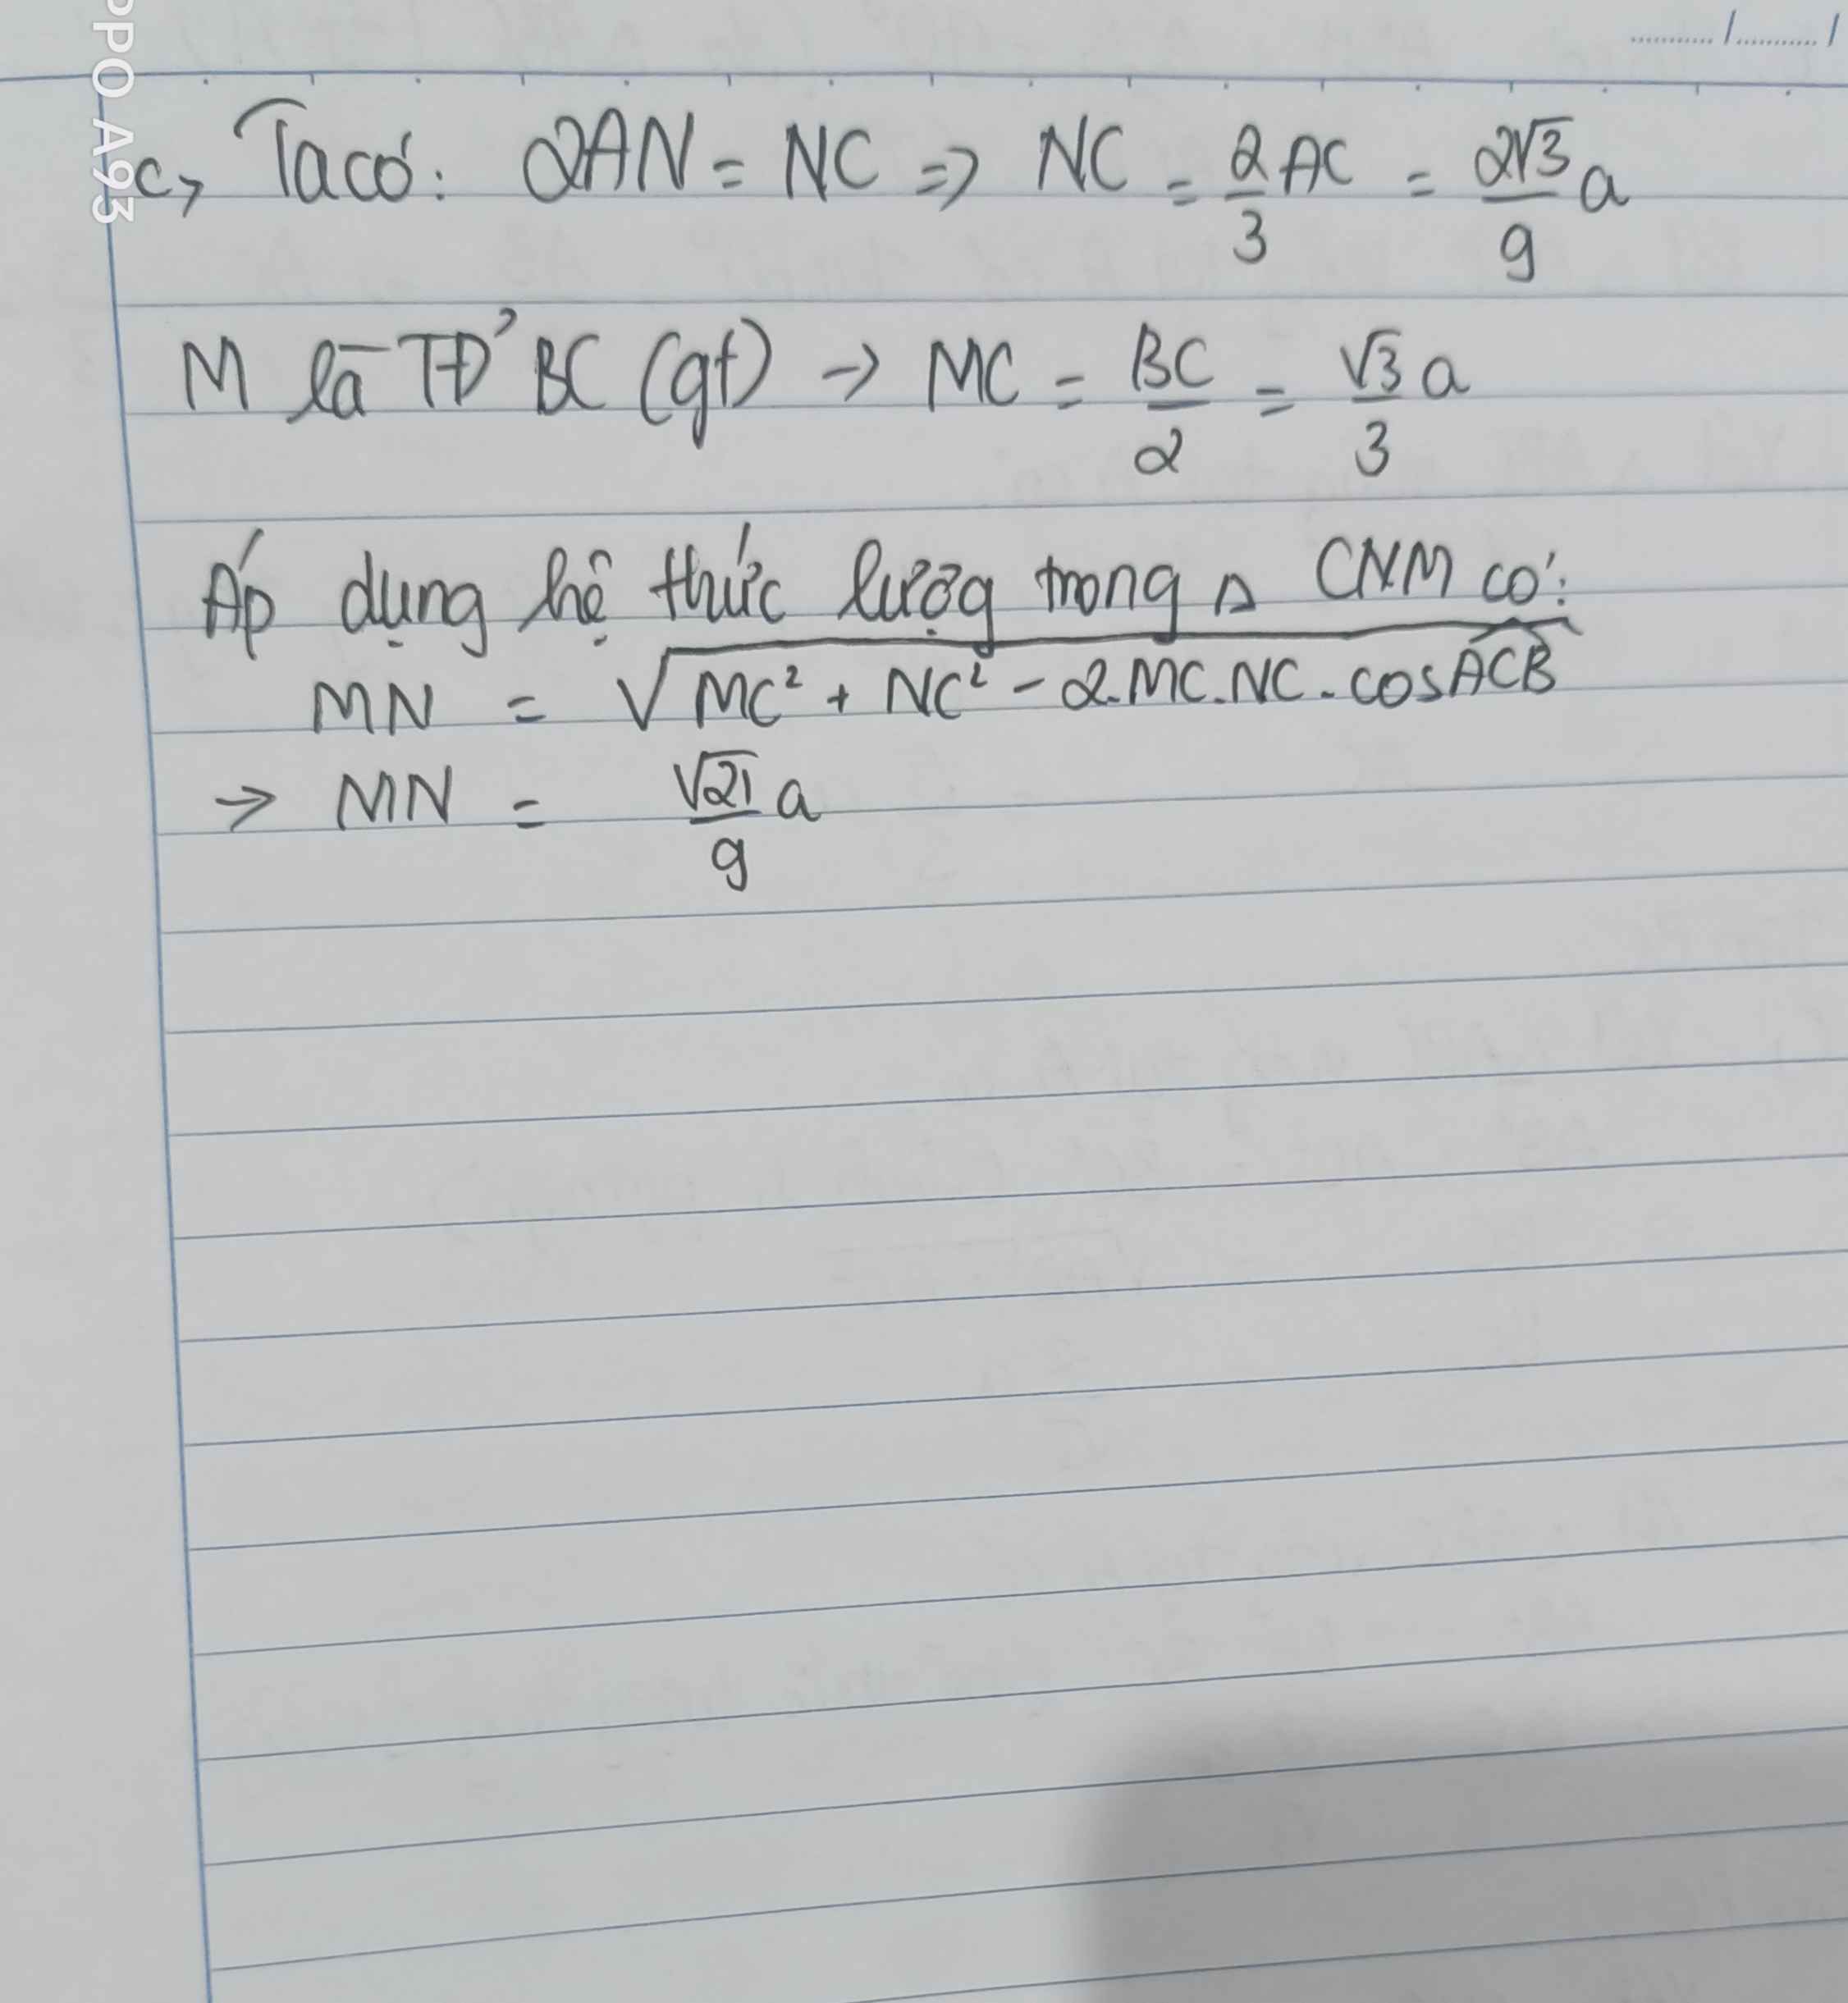 ........../........../
c, Ta có: 2AN = NC => NC = 2/3 AC = 2√3/9 a
M là TĐ' BC (gt) -> MC = BC/2 = √3/3 a
Áp dụng hệ thức lượg trong Δ CNM có:
MN = √(MC² + NC² - 2.MC.NC.cosACB)
-> MN = √21/9 a
OPPO A93